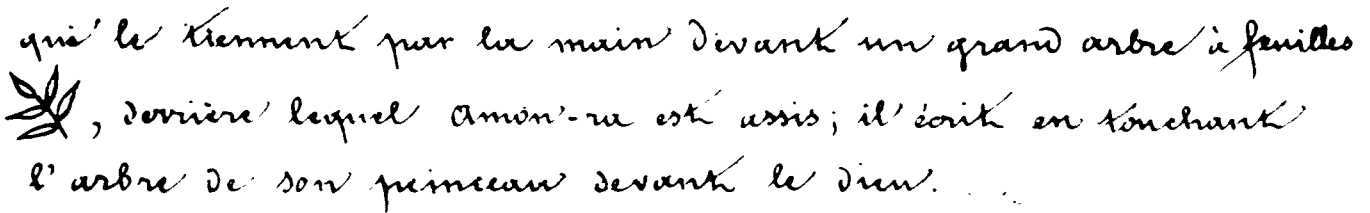 qui le tiennent par la main devant un grand arbre à feuilles
, derrière lequel Amon-ra est assis; il écrit en touchant
l'arbre de son pinceau devant le dieu.